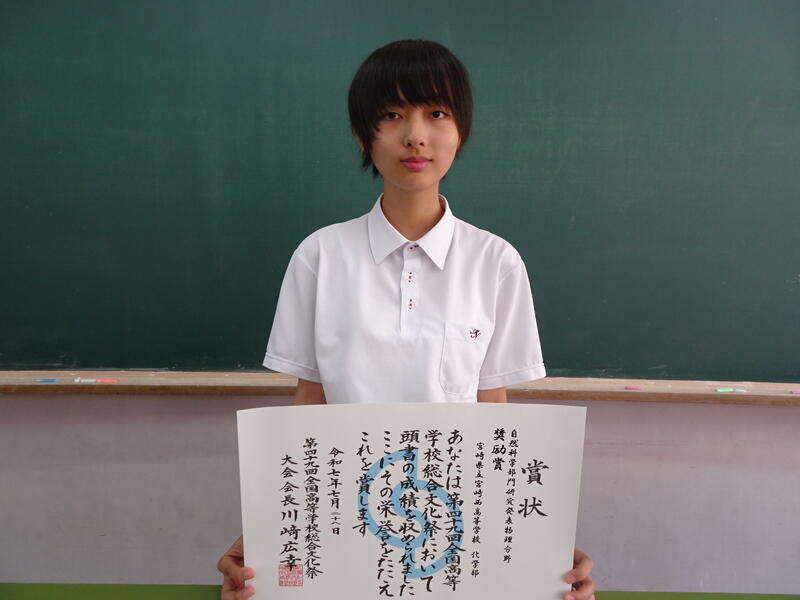 賞状
自然科学部門研究発表物理分野
奨励賞
宮崎県立宮崎西高等学校 化学部
あなたは第四十九回全国高等
学校総合文化祭において
頭書の成績を収められました
ここにその栄誉をたたえ
これを賞します
令和七年七月二十八日
第四十九回全国高等学校総合文化祭
大会会長川﨑広幸